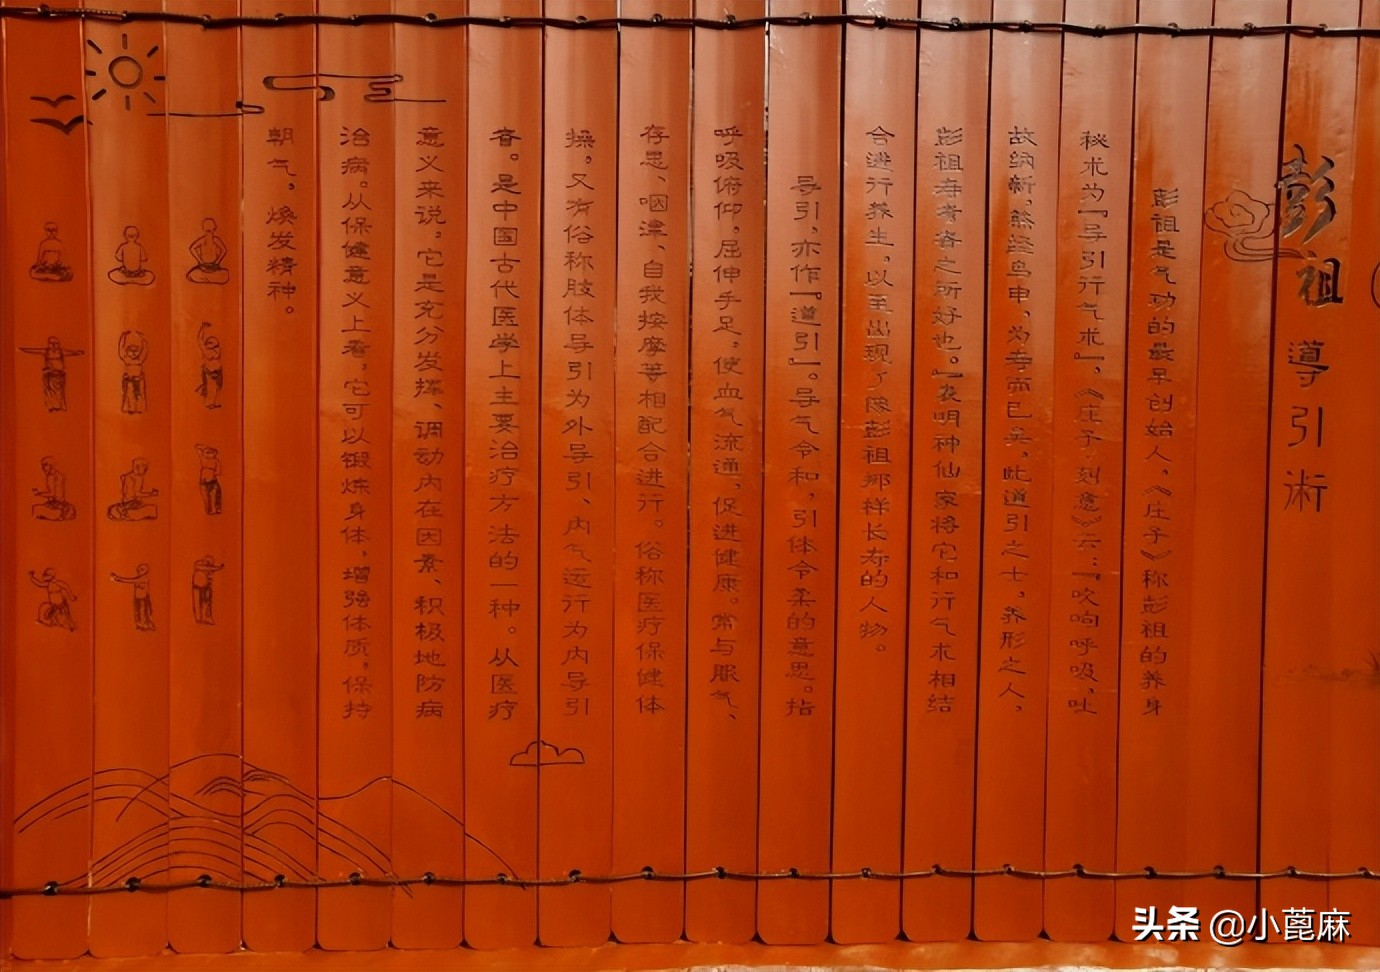 彭祖導引術
彭祖是气功的最早创始人，《庄子》称彭祖的养身
秘术为『导引行气术』，《庄子·刻意》云：『吹呴呼吸，吐
故纳新，熊经鸟申，为寿而已矣，此道引之士，养形之人，
彭祖寿考者之所好也。』表明神仙家将它和行气术相结
合进行养生，以至出现了像彭祖那样长寿的人物。
导引，亦作『道引』。导气令和，引体令柔的意思。指
呼吸俯仰，屈伸手足，使血气流通，促进健康。常与服气、
存思、咽津、自我按摩等相配合进行。俗称医疗保健体
操。又有俗称肢体导引为外导引、内气运行为内导引
者。是中国古代医学上主要治疗方法的一种。从医疗
意义来说，它是充分发挥、调动内在因素、积极地防病
治病。从保健意义上看，它可以锻炼身体，增强体质，保持
朝气，焕发精神。
头条 @小蓖麻